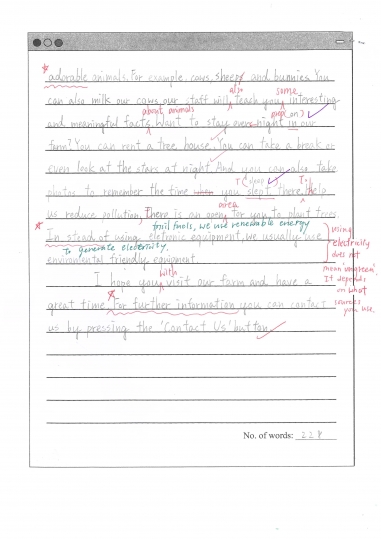 adorable animals. For example, cows, sheeps and bunnies. You
also some
can also milk our cows, our staff will teach you interesting
about animals prep(on)
and meaningful facts. Want to stay over night in our
farm? You can rent a Tree house. You can take a break or
even look at the stars at night. And you can also take
photos to remember the time when you slept there. Help
area
us reduce pollution, There is an open for you to plant trees.
fossil fuels, we use renewable energy
In stead of using eletronic equipment, we usually use
to generate electricity.
environmental friendly equipment.
using
electricity
does not
mean ungreen.
It depends
on what
sources
you use.
with
I hope you visit our farm and have a
great time. For further information you can contact
us by pressing the 'Contact Us' button.
No. of words: 228